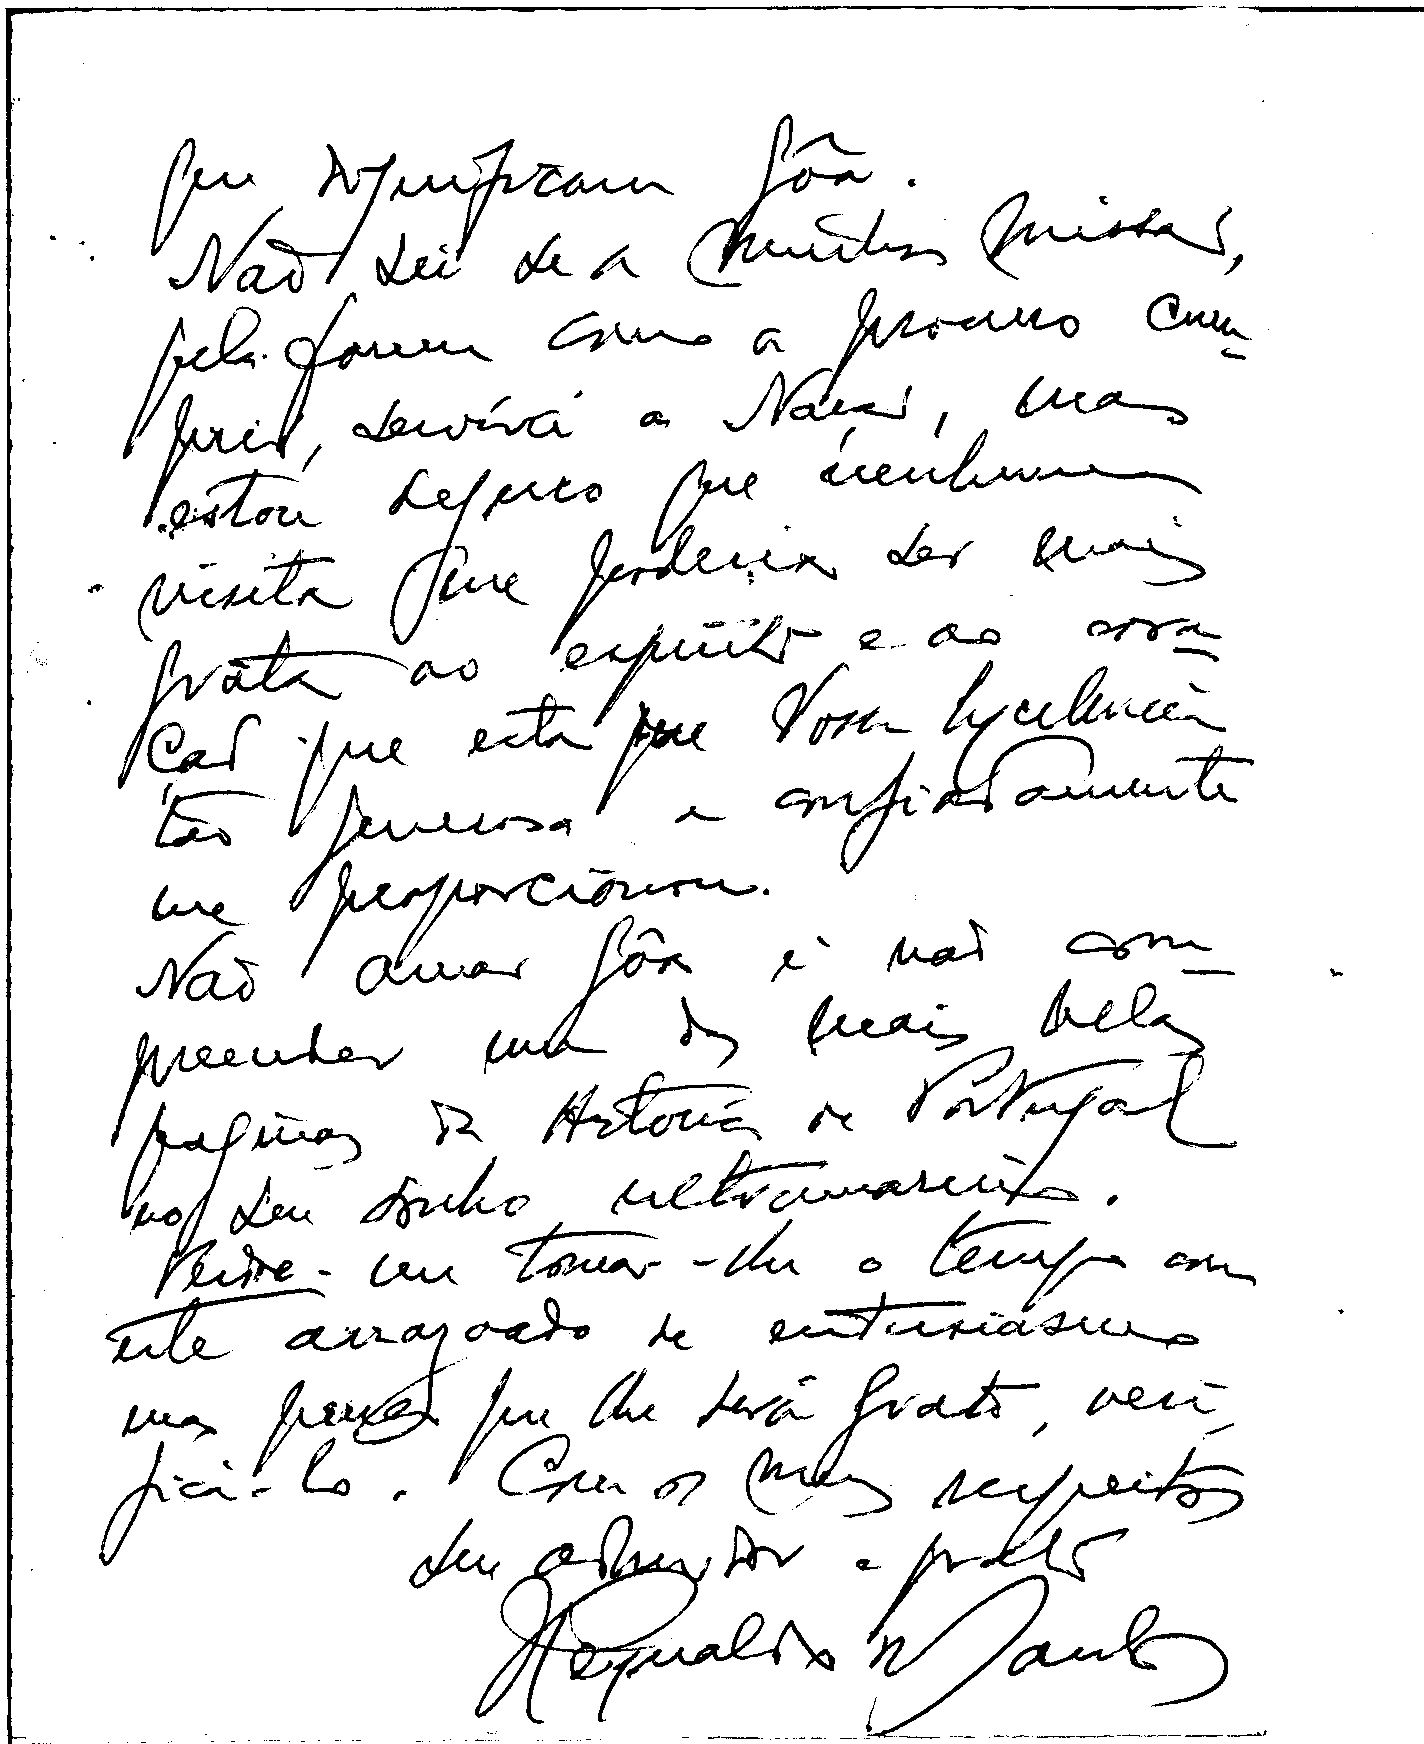 que significam Gôa.
Não sei se a minha missão,
pela forma como a procuro cum-
prir, servirá a Nação, mas
estou seguro que nenhuma
visita me poderia ser mais
grata ao espírito e ao cora-
ção que esta que Vossa Excelência
tão generosa e confiadamente
me proporcionou.
Não amar Gôa é não com-
preender uma das mais belas
paginas da Historia de Portugal
no seu sonho ultramarino.
Perdoe-me tomar-lhe o tempo com
este arrazoado de entusiasmo
mas penso que lhe será grato, veri-
ficá-lo. Com os meus respeitos
seu admirador e grato
Reynaldo dos Santos